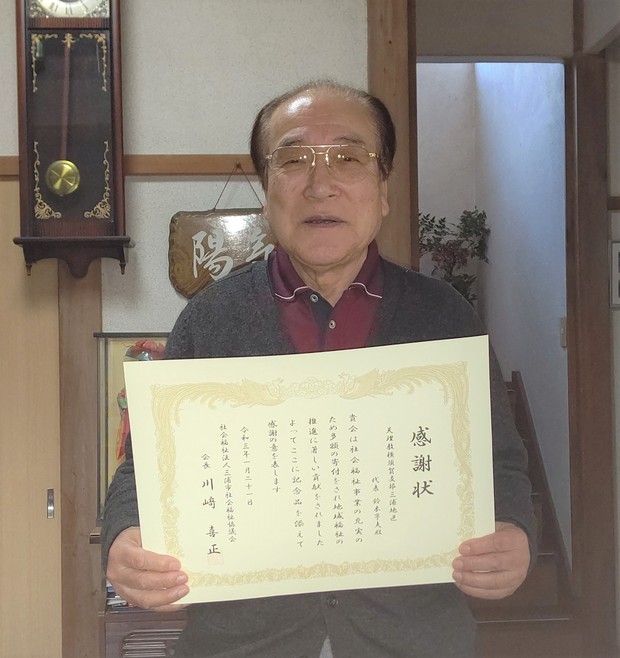 感謝状
天理教横須賀支部三浦地区
代表 鈴木市夫殿
貴会は社会福祉事業の充実の
ため多額の寄付をされ地域福祉の
推進に著しい貢献をされました
よってここに記念品を添えて
感謝の意を表します
令和三年一月二十一日
社会福祉法人三浦市社会福祉協議会
会長 川﨑 喜正
陽